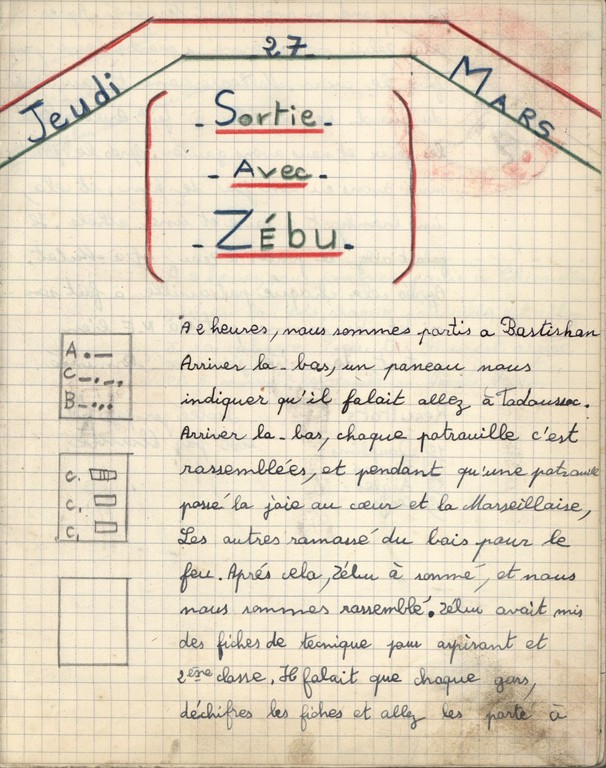 27
Jeudi
Mars
- Sortie -
- Avec -
- Zébu -
A .-
C -.-.
B -...
C.
C,
C,
A 2 heures, nous sommes partis a Bastishan
Arriver la-bas, un paneau nous
indiquer qu'il falait allez à Tadoussac.
Arriver la-bas, chaque patrouille c'est
rassemblées, et pendant qu'une patrouille
passé la joie au cœur et la Marseillaise,
Les autres ramassé du bois pour le
feu. Aprés cela, Zébu à sonné, et nous
nous sommes rassemblé. Zébu avait mis
des fiches de tecnique pour aspirant et
2ème classe. Il falait que chaque gars,
déchifres les fiches et allez les porté à